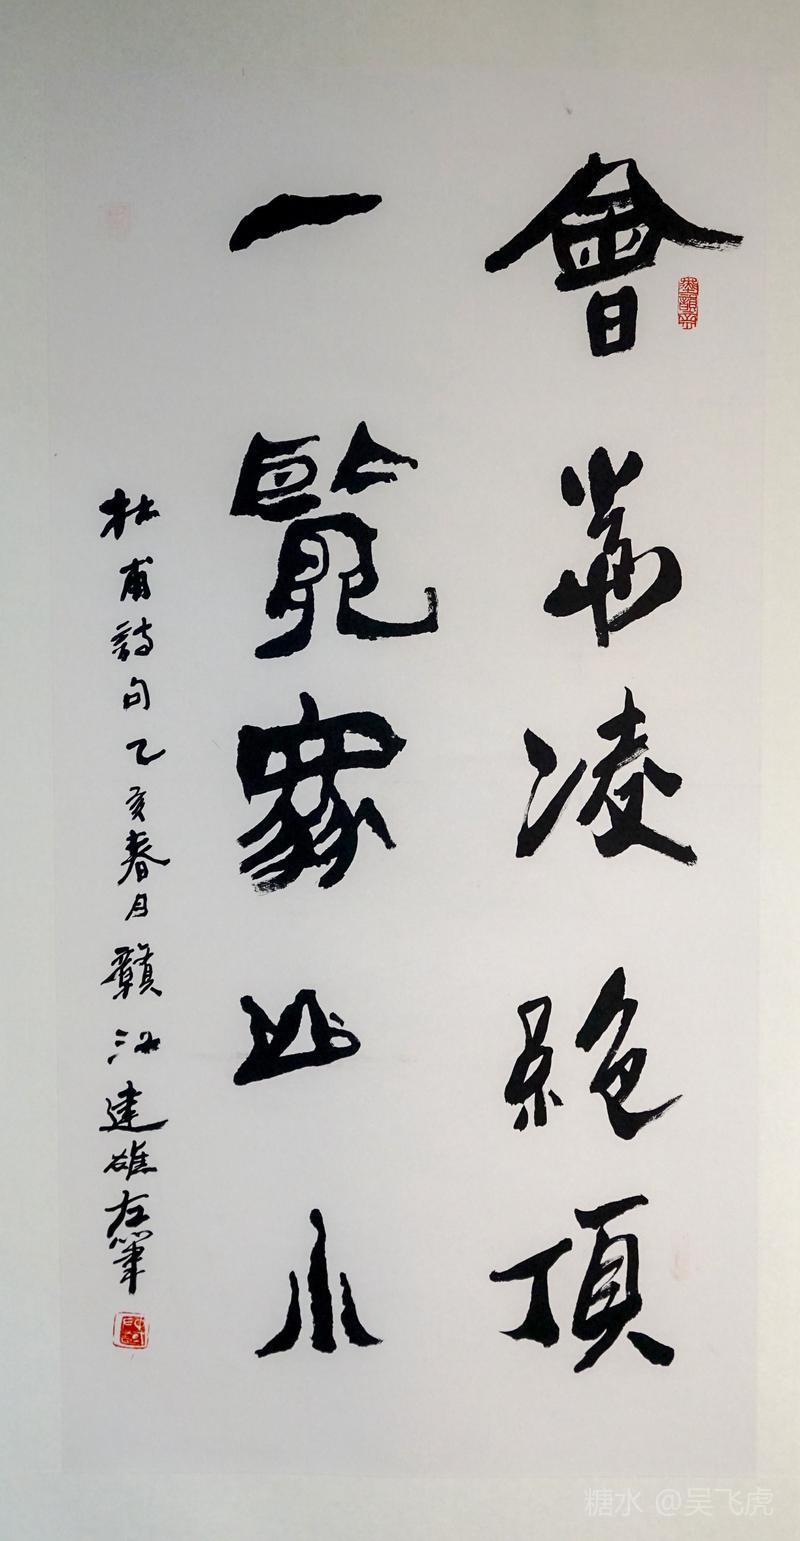 會當凌絕頂
一覽眾山小
杜甫詩句乙亥春月贛江建礁左筆
糖水 @吴飞虎